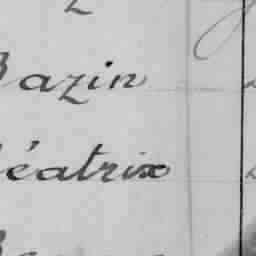 Bazin
Béatrix